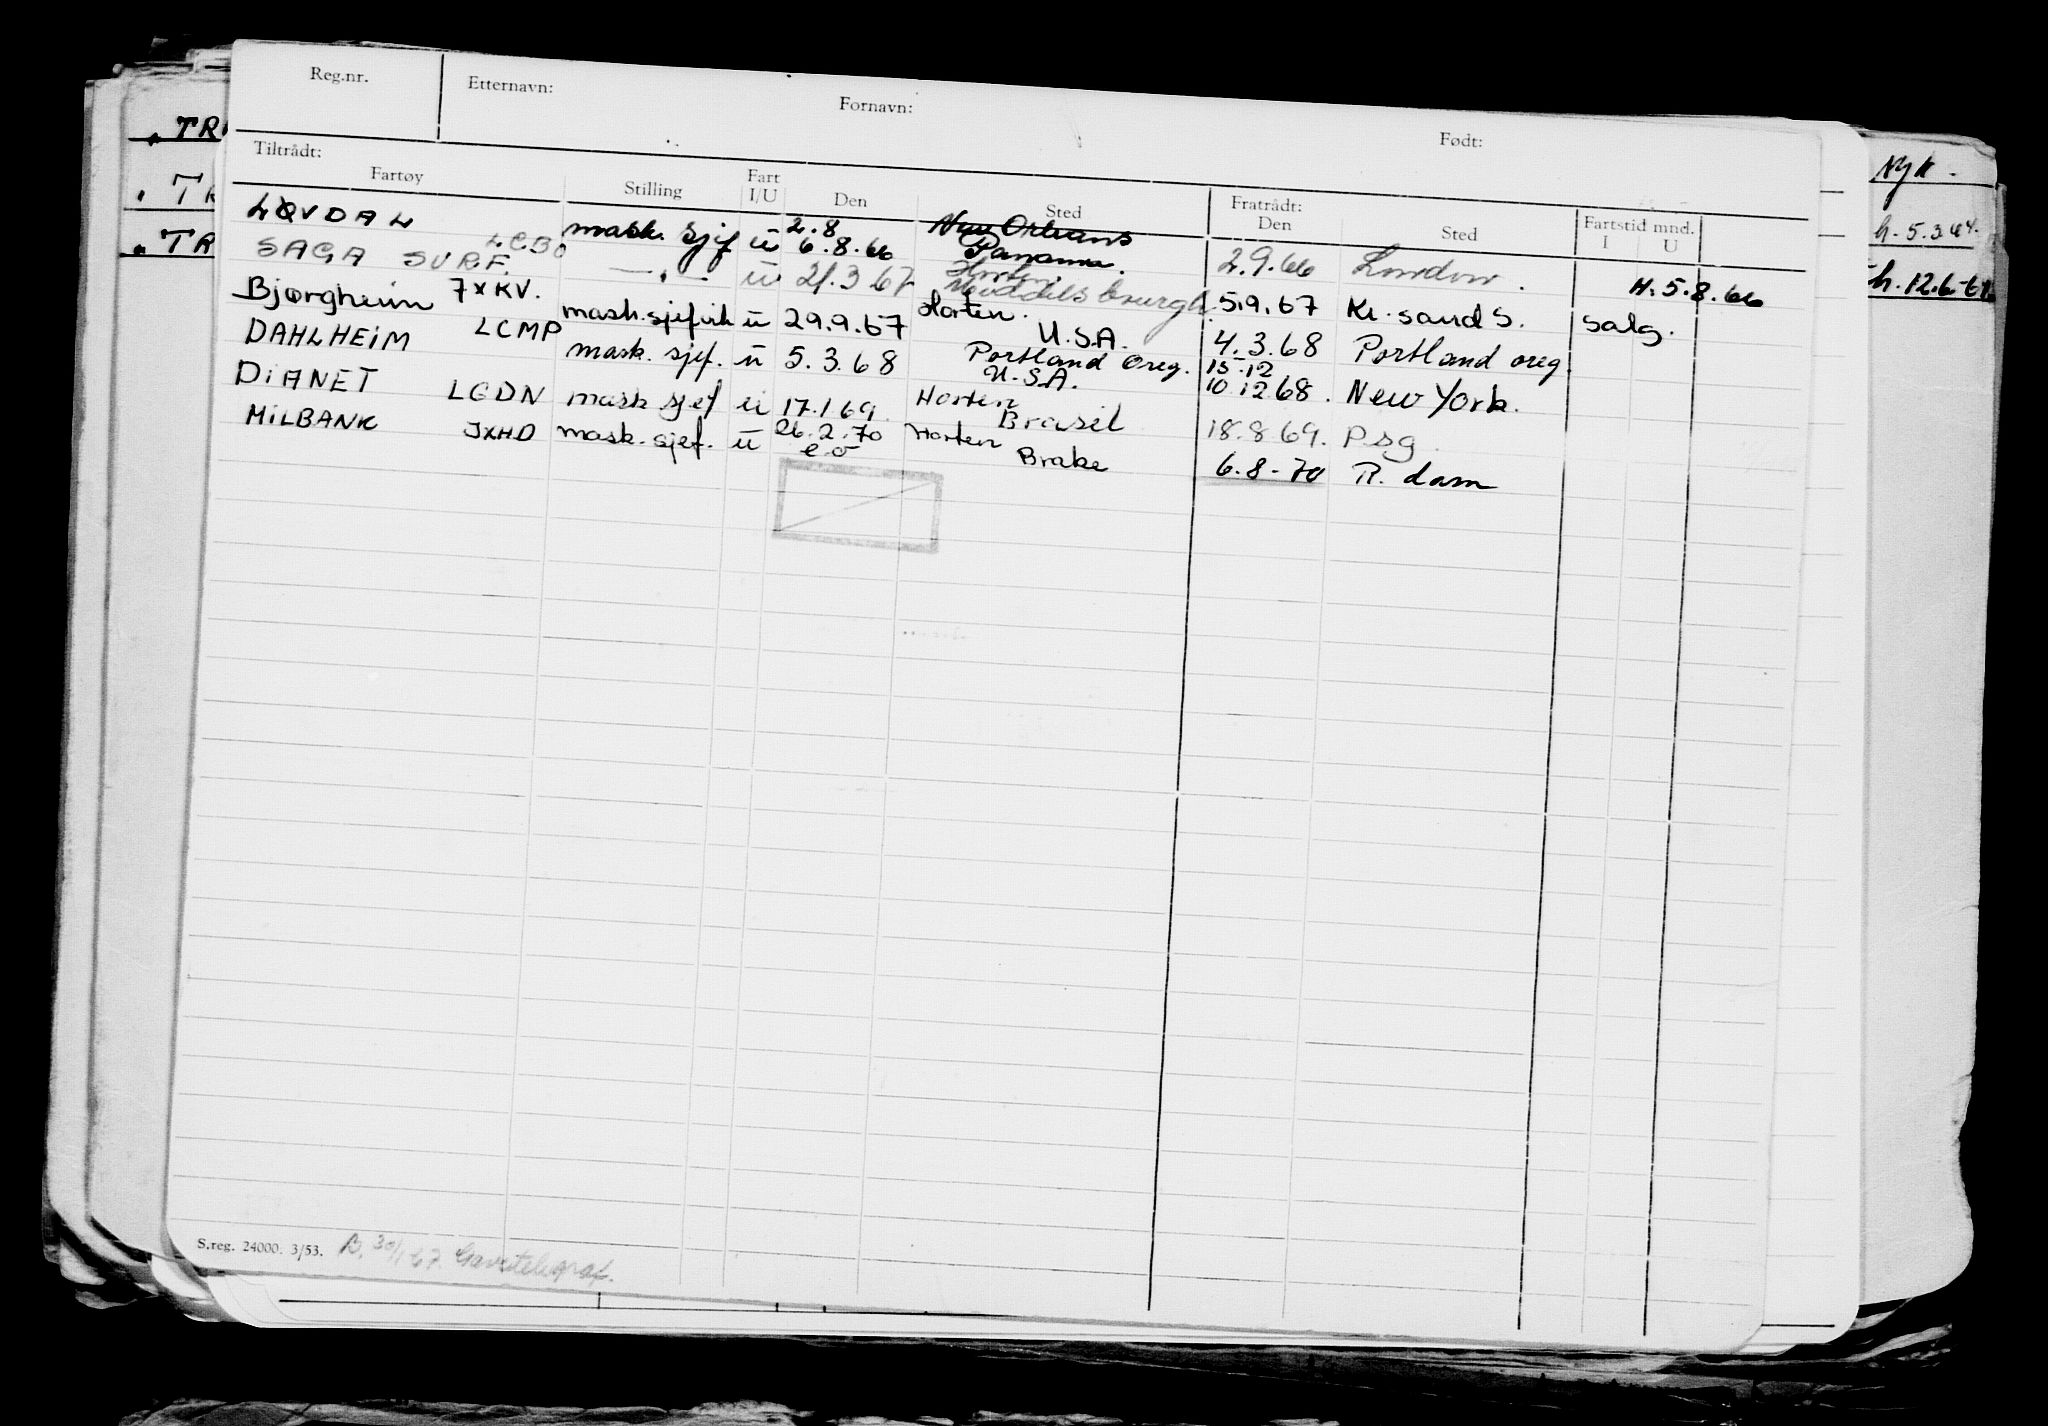 Reg.nr. Etternavn: Fornavn: Født:
Tiltrådt: Fratrådt:
Fartøy Stilling Fart I/U Den Sted Den Sted Fartstid mnd. I U
LØVDAL mask. sjef u 2.8 6.8.66 New Orleans Panama. 2.9.66 London. H. 5.8.66
SAGA SURF. LCBO —"— u 21.3 67 Horten Middelsburgh 5.9.67 Kr. sand S. salg.
Bjørgheim 7XKV. mask.sjefvik u 29.9.67 Horten. U.S.A. 4.3.68 Portland oreg.
DAHLHEIM LCMP mask. sjef. u 5.3.68 Portland Oreg. U.S.A. 15.12 10.12.68. New York.
DIANET LGDN mask sjef u 17.1 69. Horten Brasil 18.8 69. Psg
MILBANK JXHD mask.sjef. u 26.2.70 e.o Horten Brake 6.8-70 R. dam
S.reg. 24000. 3/53. B. 30/1-67. Gavetelegraf.
TR
TR
TR
NyK.
h. 5.3.64.
h. 12.6-61